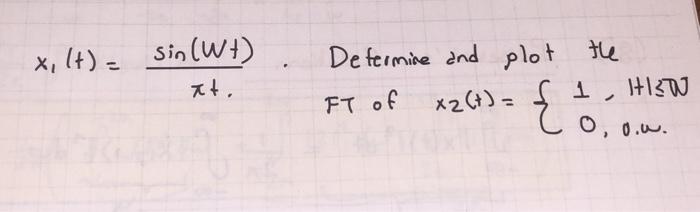 x₁(t) = sin(Wt) / πt. Determine and plot the
FT of x₂(t) = { 1, |t|≤W
0, o.w.